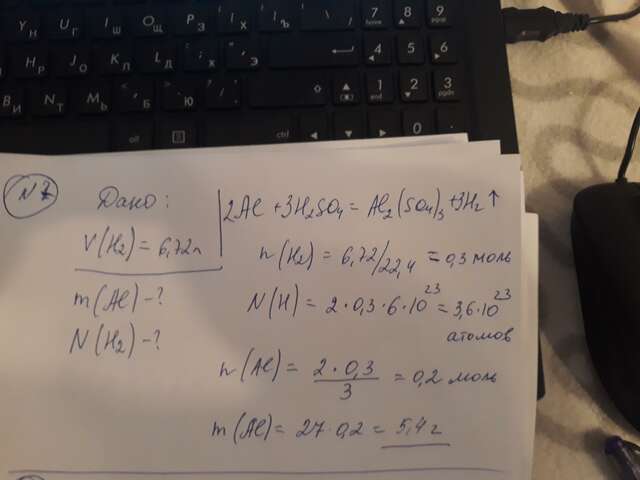 7 home 8 9 pgup
4 5 6
1 end 2 3 pgdn
alt ctrl 0
N 7
Дано:
V(H₂) = 6,72л
m(Al) - ?
N(H₂) - ?
2Al + 3H₂SO₄ = Al₂(SO₄)₃ + 3H₂ ↑
n(H₂) = 6,72/22,4 = 0,3 моль
N(H) = 2 · 0,3 · 6 · 10²³ = 3,6 · 10²³
атомов
n(Al) = 2 · 0,3 / 3 = 0,2 моль
m(Al) = 27 · 0,2 = 5,4 г